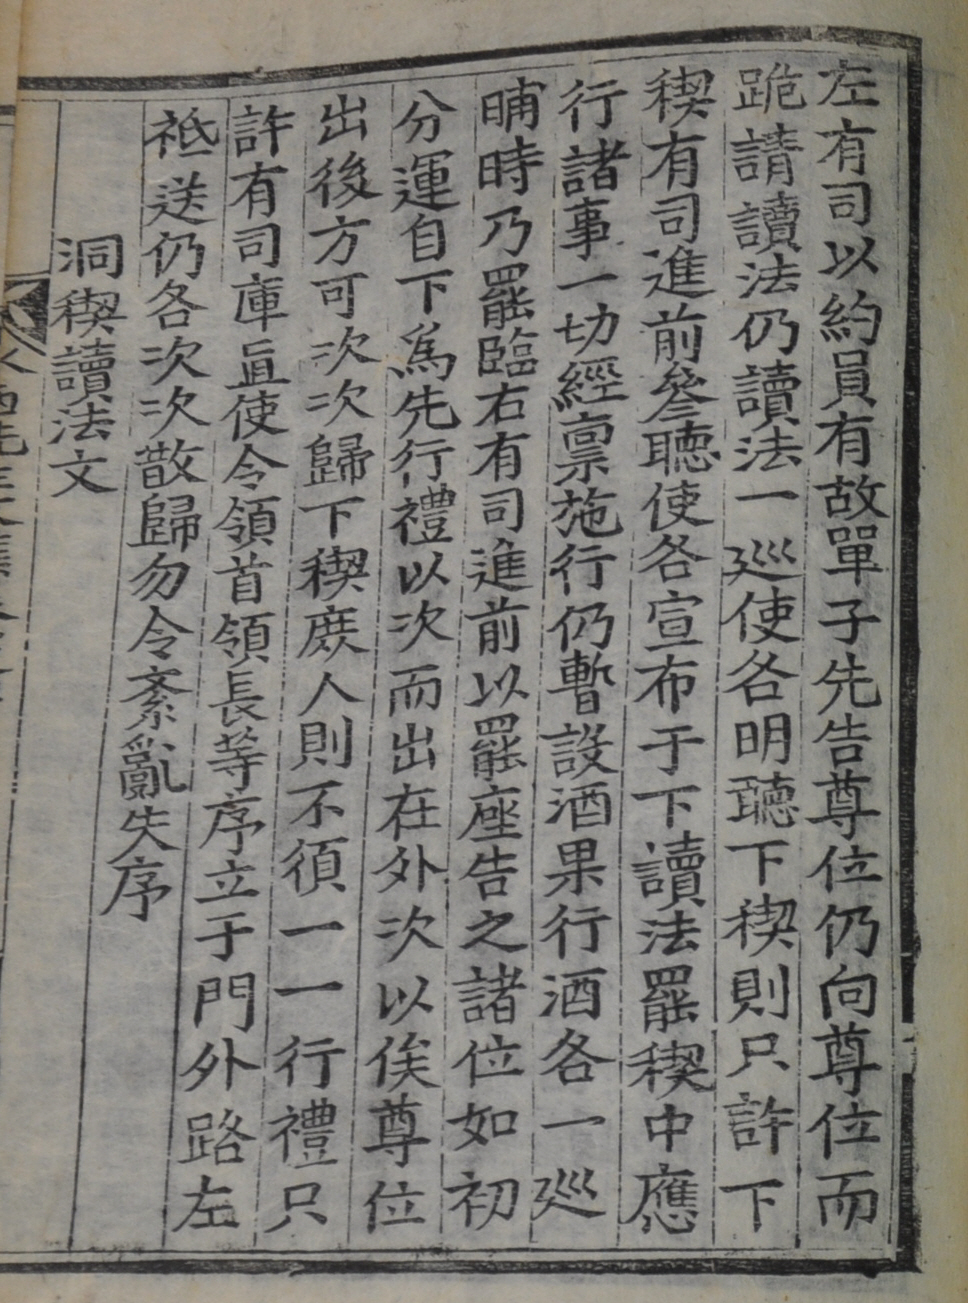 左有司以約員有故單子先告尊位仍向尊位而
跪請讀法仍讀法一巡使各明聽下稧則只許下
稧有司進前叅聽使各宣布于下讀法罷稧中應
行諸事一切經禀施行仍暫設酒果行酒各一巡
晡時乃罷臨右有司進前以罷座告之諸位如初
分運自下爲先行禮以次而出在外次以俟尊位
出後方可次次歸下稧庶人則不須一一行禮只
許有司庫直使令領首領長等序立于門外路左
祗送仍各次次散歸勿令紊亂失序
洞稧讀法文